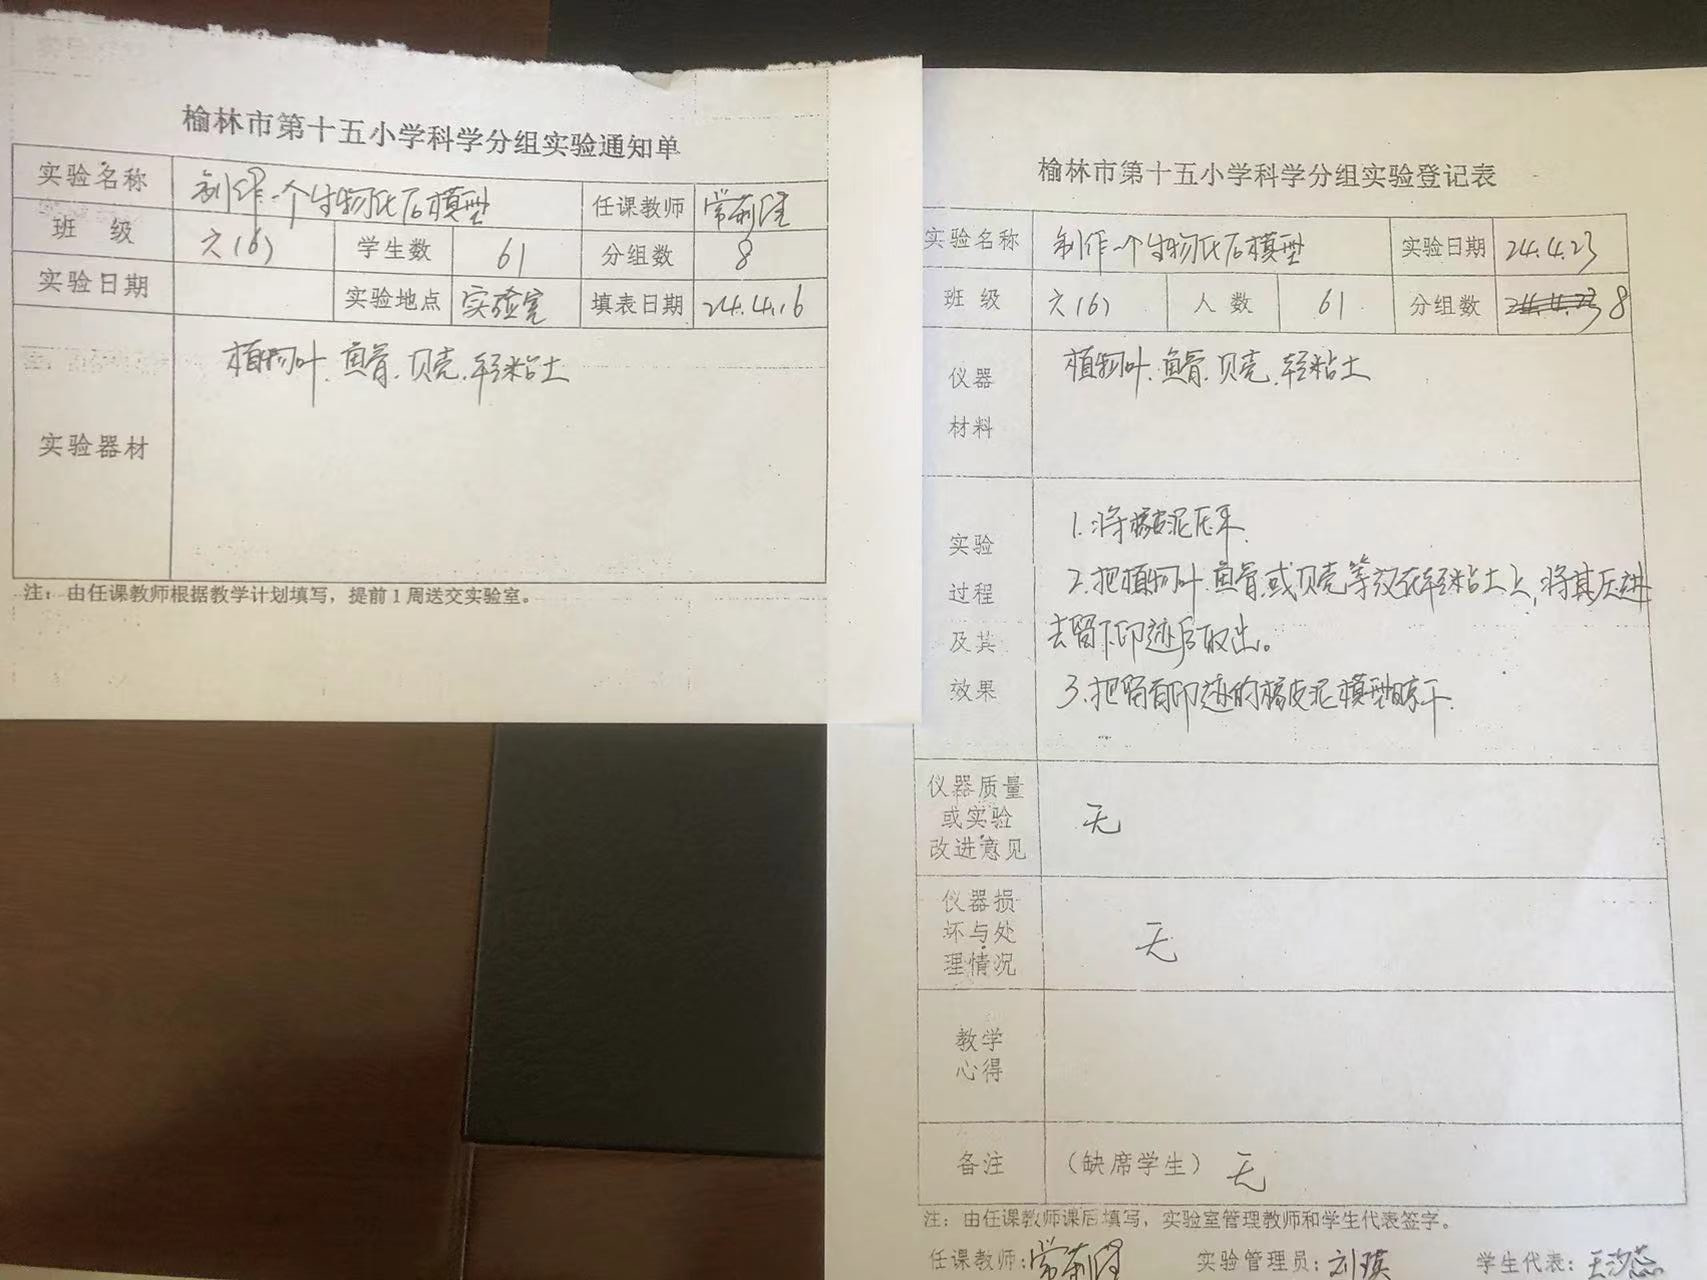 榆林市第十五小学科学分组实验通知单
实验名称 制作一个生物化石模型 任课教师
班 级 六(6) 学生数 61 分组数 8
实验日期 实验地点 实验室 填表日期 24.4.16
实验器材 植物叶.鱼骨.贝壳.轻粘土
注：由任课教师根据教学计划填写，提前1周送交实验室。
榆林市第十五小学科学分组实验登记表
实验名称 制作一个生物化石模型 实验日期 24.4.23
班 级 六(6) 人 数 61 分组数 8
仪器
材料
植物叶.鱼骨.贝壳.轻粘土
实验
过程
及其
效果
1.将橡皮泥压平.
2.把植物叶.鱼骨.或贝壳等放在轻粘土上,将其压进
去留下印迹后取出。
3.把留有印迹的橡皮泥模型晾干.
仪器质量
或实验
改进意见
无
仪器损
坏与处
理情况
无
教学
心得
备注 （缺席学生） 无
注：由任课教师课后填写，实验室管理教师和学生代表签字。
任课教师: 实验管理员: 刘瑛 学生代表: